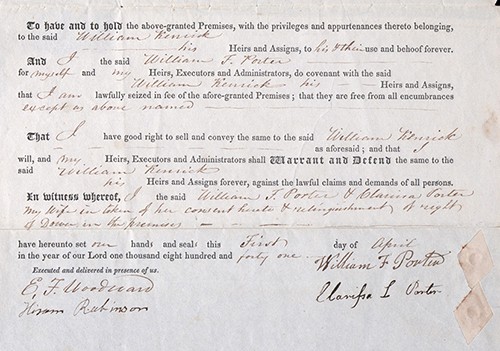 To have and to hold the above-granted Premises, with the privileges and appurtenances thereto belonging,
to the said William Kenrick
his Heirs and Assigns, to his & their use and behoof forever.
And I the said William F. Porter
for myself and my Heirs, Executors and Administrators, do covenant with the said
William Kenrick his Heirs and Assigns,
that I am lawfully seized in fee of the afore-granted Premises; that they are free from all encumbrances
except as above named
That I have good right to sell and convey the same to the said William Kenrick
as aforesaid; and that I
will, and my Heirs, Executors and Administrators shall Warrant and Defend the same to the
said William Kenrick
his Heirs and Assigns forever, against the lawful claims and demands of all persons.
In witness whereof, I the said William F. Porter & Clarissa Porter
my Wife in token of her consent hereto & relinquishment of right
of Dower in the premises
have hereunto set our hands and seals this First day of April
in the year of our Lord one thousand eight hundred and forty one.
Executed and delivered in presence of us.
William F Porter
E. F. Woodward
Clarissa L Porter
Hiram Robinson